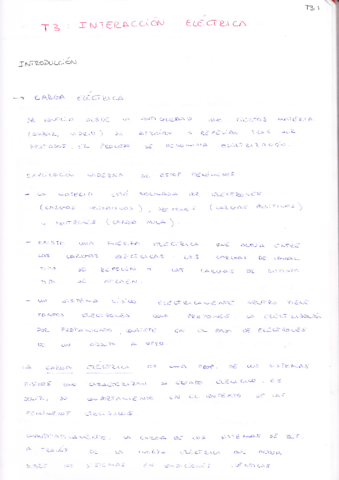 T3.1
T3: INTERACCIÓN ELÉCTRICA
INTRODUCCIÓN
→ CARGA ELÉCTRICA
SE CONOCÍA DESDE LA ANTIGÜEDAD QUE CIERTOS MATERIA.
(ÁMBAR, VIDRIO) SE ATRAÍAN Y REPELÍAN TRAS SER
FROTADOS, EL PROCESO SE DENOMINA ELECTRIZACIÓN.
EXPLICACIÓN MODERNA DE ESTOS FENÓMENOS
- LA MATERIA ESTÁ FORMADA POR ELECTRONES
(CARGAS NEGATIVAS), PROTONES (CARGAS POSITIVAS)
Y NEUTRONES (CARGA NULA).
- EXISTE UNA FUERZA ELÉCTRICA QUE ACTÚA ENTRE
LAS CARGAS ELÉCTRICAS. LAS CARGAS DE IGUAL
TIPO SE REPELEN Y LAS CARGAS DE DISTINTO
TIPO SE ATRAEN.
- UN SISTEMA FÍSICO ELÉCTRICAMENTE NEUTRO TIENE
TANTOS ELECTRONES COMO PROTONES. LA ELECTRIZACIÓN
POR FROTAMIENTO, CONSISTE EN EL PASO DE ELECTRONES
DE UN CUERPO A OTRO.
LA CARGA ELÉCTRICA ES UNA PROP. DE LOS SISTEMAS
FÍSICOS QUE CARACTERIZAN SU ESTADO ELÉCTRICO, ES
DECIR, SU COMPORTAMIENTO EN EL CONTEXTO DE LOS
FENÓMENOS ELÉCTRICOS
CUANTITATIVAMENTE, LA CARGA DE LOS SISTEMAS SE DEF
A TRAVÉS DE LA FUERZA ELÉCTRICA QUE ACTÚA
SOBRE LOS SISTEMAS EN CONDICIONES IDÉNTICAS